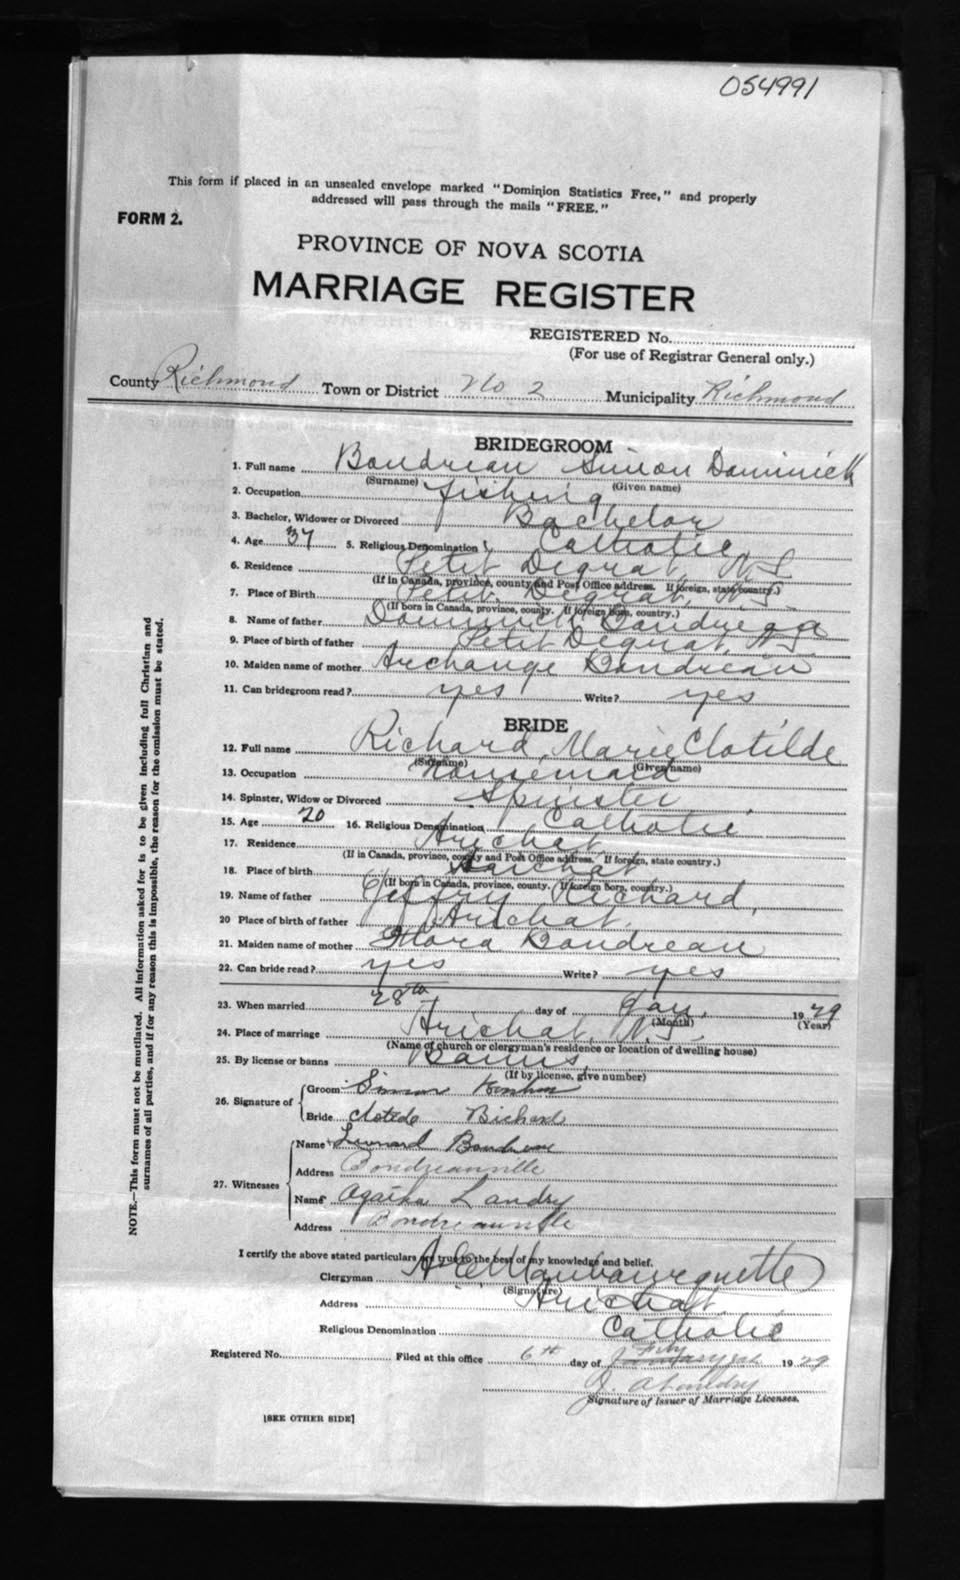 054991
This form if placed in an unsealed envelope marked "Dominion Statistics Free," and properly
addressed will pass through the mails "FREE."
FORM 2.
PROVINCE OF NOVA SCOTIA
MARRIAGE REGISTER
REGISTERED No.
(For use of Registrar General only.)
County Richmond Town or District No 2 Municipality Richmond
BRIDEGROOM
1. Full name Boudreau Simon Dominick
(Surname) (Given name)
2. Occupation fishing
3. Bachelor, Widower or Divorced Bachelor
4. Age 37 5. Religious Denomination Catholic
6. Residence Petit Degrat, N.S.
(If in Canada, province, county and Post Office address. If foreign, state country.)
7. Place of Birth Petit Degrat, N.S.
(If born in Canada, province, county. If foreign born, country.)
8. Name of father Dominick
9. Place of birth of father Petit Degrat, N.S.
10. Maiden name of mother Archange Boudreau
11. Can bridegroom read? yes Write? yes
BRIDE
12. Full name Richard, Marie Clotilde
(Surname) (Given name)
13. Occupation Housemaid
14. Spinster, Widow or Divorced Spinster
15. Age 20 16. Religious Denomination Catholic
17. Residence Arichat,
(If in Canada, province, county and Post Office address. If foreign, state country.)
18. Place of birth Arichat
(If born in Canada, province, county. If foreign born, country.)
19. Name of father Jeffry Richard,
20 Place of birth of father Arichat,
21. Maiden name of mother Boudreau
22. Can bride read? yes Write? yes
23. When married 28th day of Jan, 1929
(Month) (Year)
24. Place of marriage Arichat, N.S.
(Name of church or clergyman's residence or location of dwelling house)
25. By license or banns Banns,
(If by license, give number)
26. Signature of
Groom Simon
Bride Clotilde Richard
27. Witnesses
Name Boudreau
Address Boudreauville
Name Agatha Landry
Address Boudreauville
I certify the above stated particulars are true to the best of my knowledge and belief.
Clergyman A E Mombourquette
(Signature)
Address Arichat,
Religious Denomination Catholic
Registered No. Filed at this office 6th day of Feby 1929
J. A. Landry
Signature of Issuer of Marriage Licenses.
[SEE OTHER SIDE]
NOTE.—This form must not be mutilated. All information asked for is to be given including full Christian and
surnames of all parties, and if for any reason this is impossible, the reason for the omission must be stated.